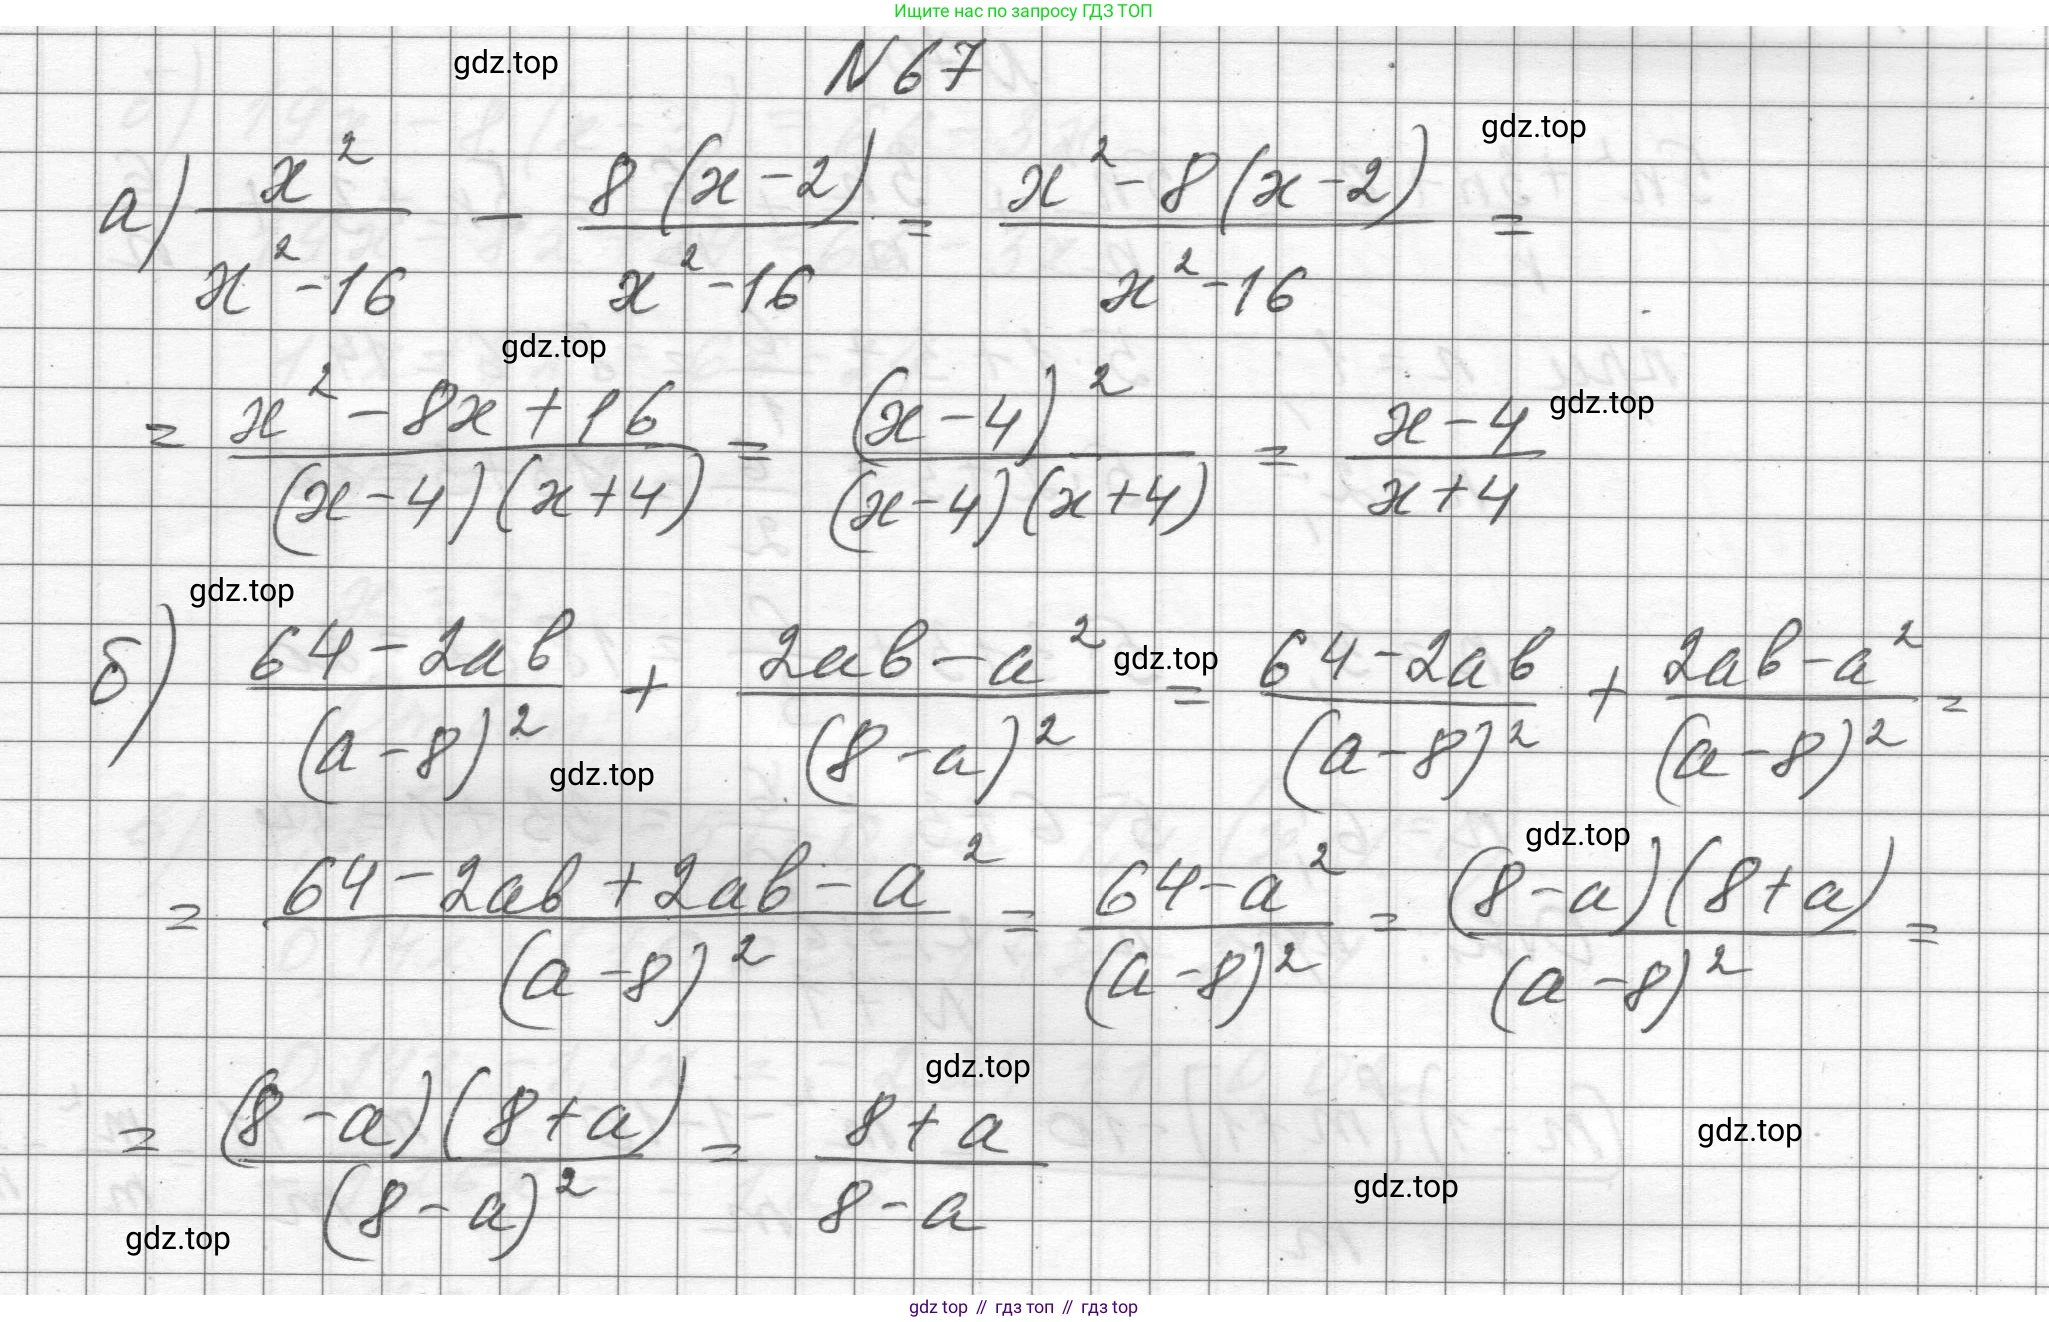 Ищите нас по запросу ГДЗ ТОП
gdz.top
N 67
gdz.top
а) x²/(x²-16) - 8(x-2)/(x²-16) = (x²-8(x-2))/(x²-16) =
gdz.top
= (x²-8x+16)/((x-4)(x+4)) = (x-4)²/((x-4)(x+4)) = (x-4)/(x+4)
gdz.top
gdz.top
б) (64-2ab)/(a-8)² + (2ab-a²)/(8-a)² = (64-2ab)/(a-8)² + (2ab-a²)/(a-8)² =
gdz.top
gdz.top
gdz.top
= (64-2ab+2ab-a²)/(a-8)² = (64-a²)/(a-8)² = (8-a)(8+a)/(a-8)² =
gdz.top
= (8-a)(8+a)/(8-a)² = (8+a)/(8-a)
gdz.top
gdz.top
gdz.top
gdz top // гдз топ // гдз top